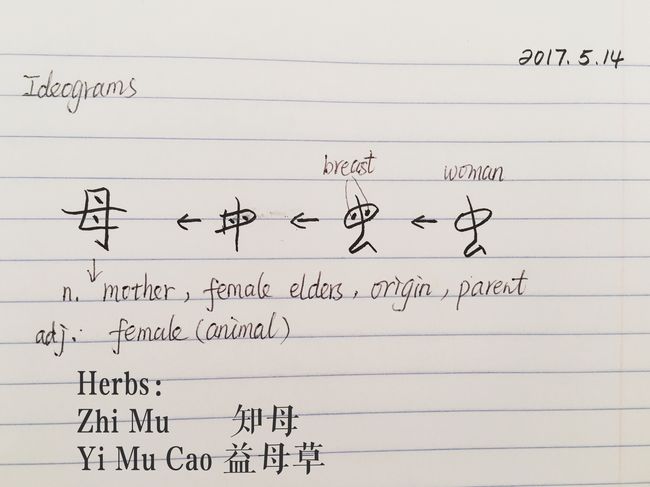 2017.5.14
Ideograms
breast woman
母 ← ← ←
n. mother, female elders, origin, parent
adj. female (animal)
Herbs:
Zhi Mu 知母
Yi Mu Cao 益母草